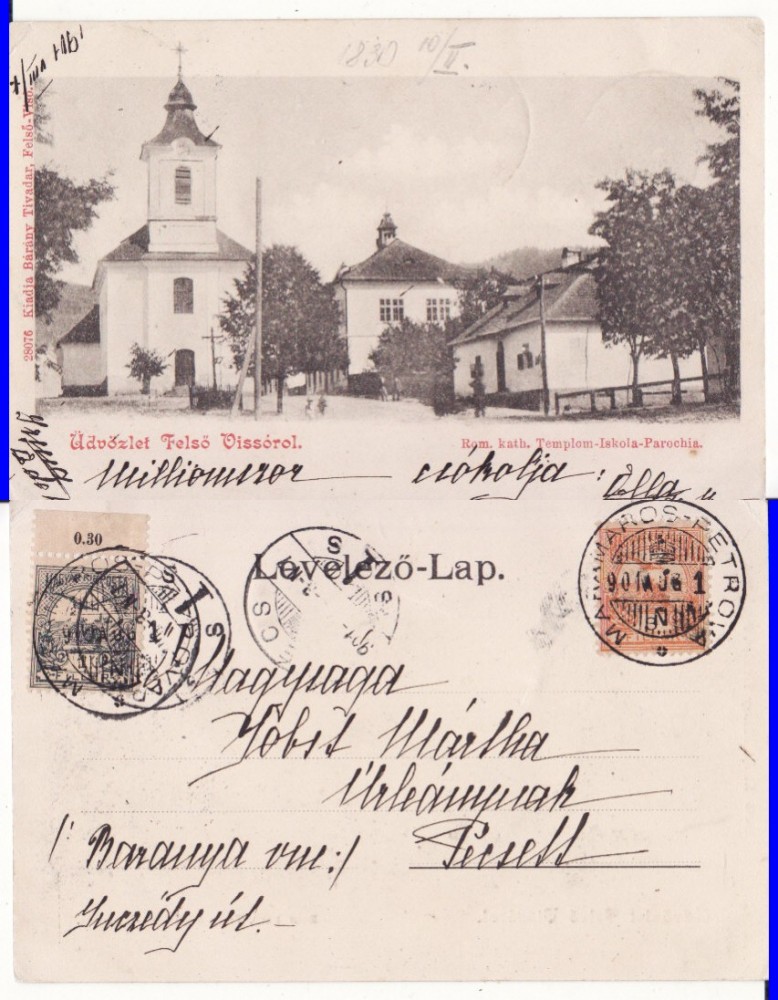 1830 10/II.
28076 Kiadja Bárány Tivadar, Felső-Visó.
Üdvözlet Felső Vissóról.
Rom. kath. Templom-Iskola-Parochia.
Milliomszor csókolja: Ella
0.30
Levelező-Lap.
MÁRAMAROS-PETROVA
901 MÁJ 6 1
Nagysága
Vöbst Mártha
Úrleánynak
(Baranya vm:) Pécsett
Inczédy út.-